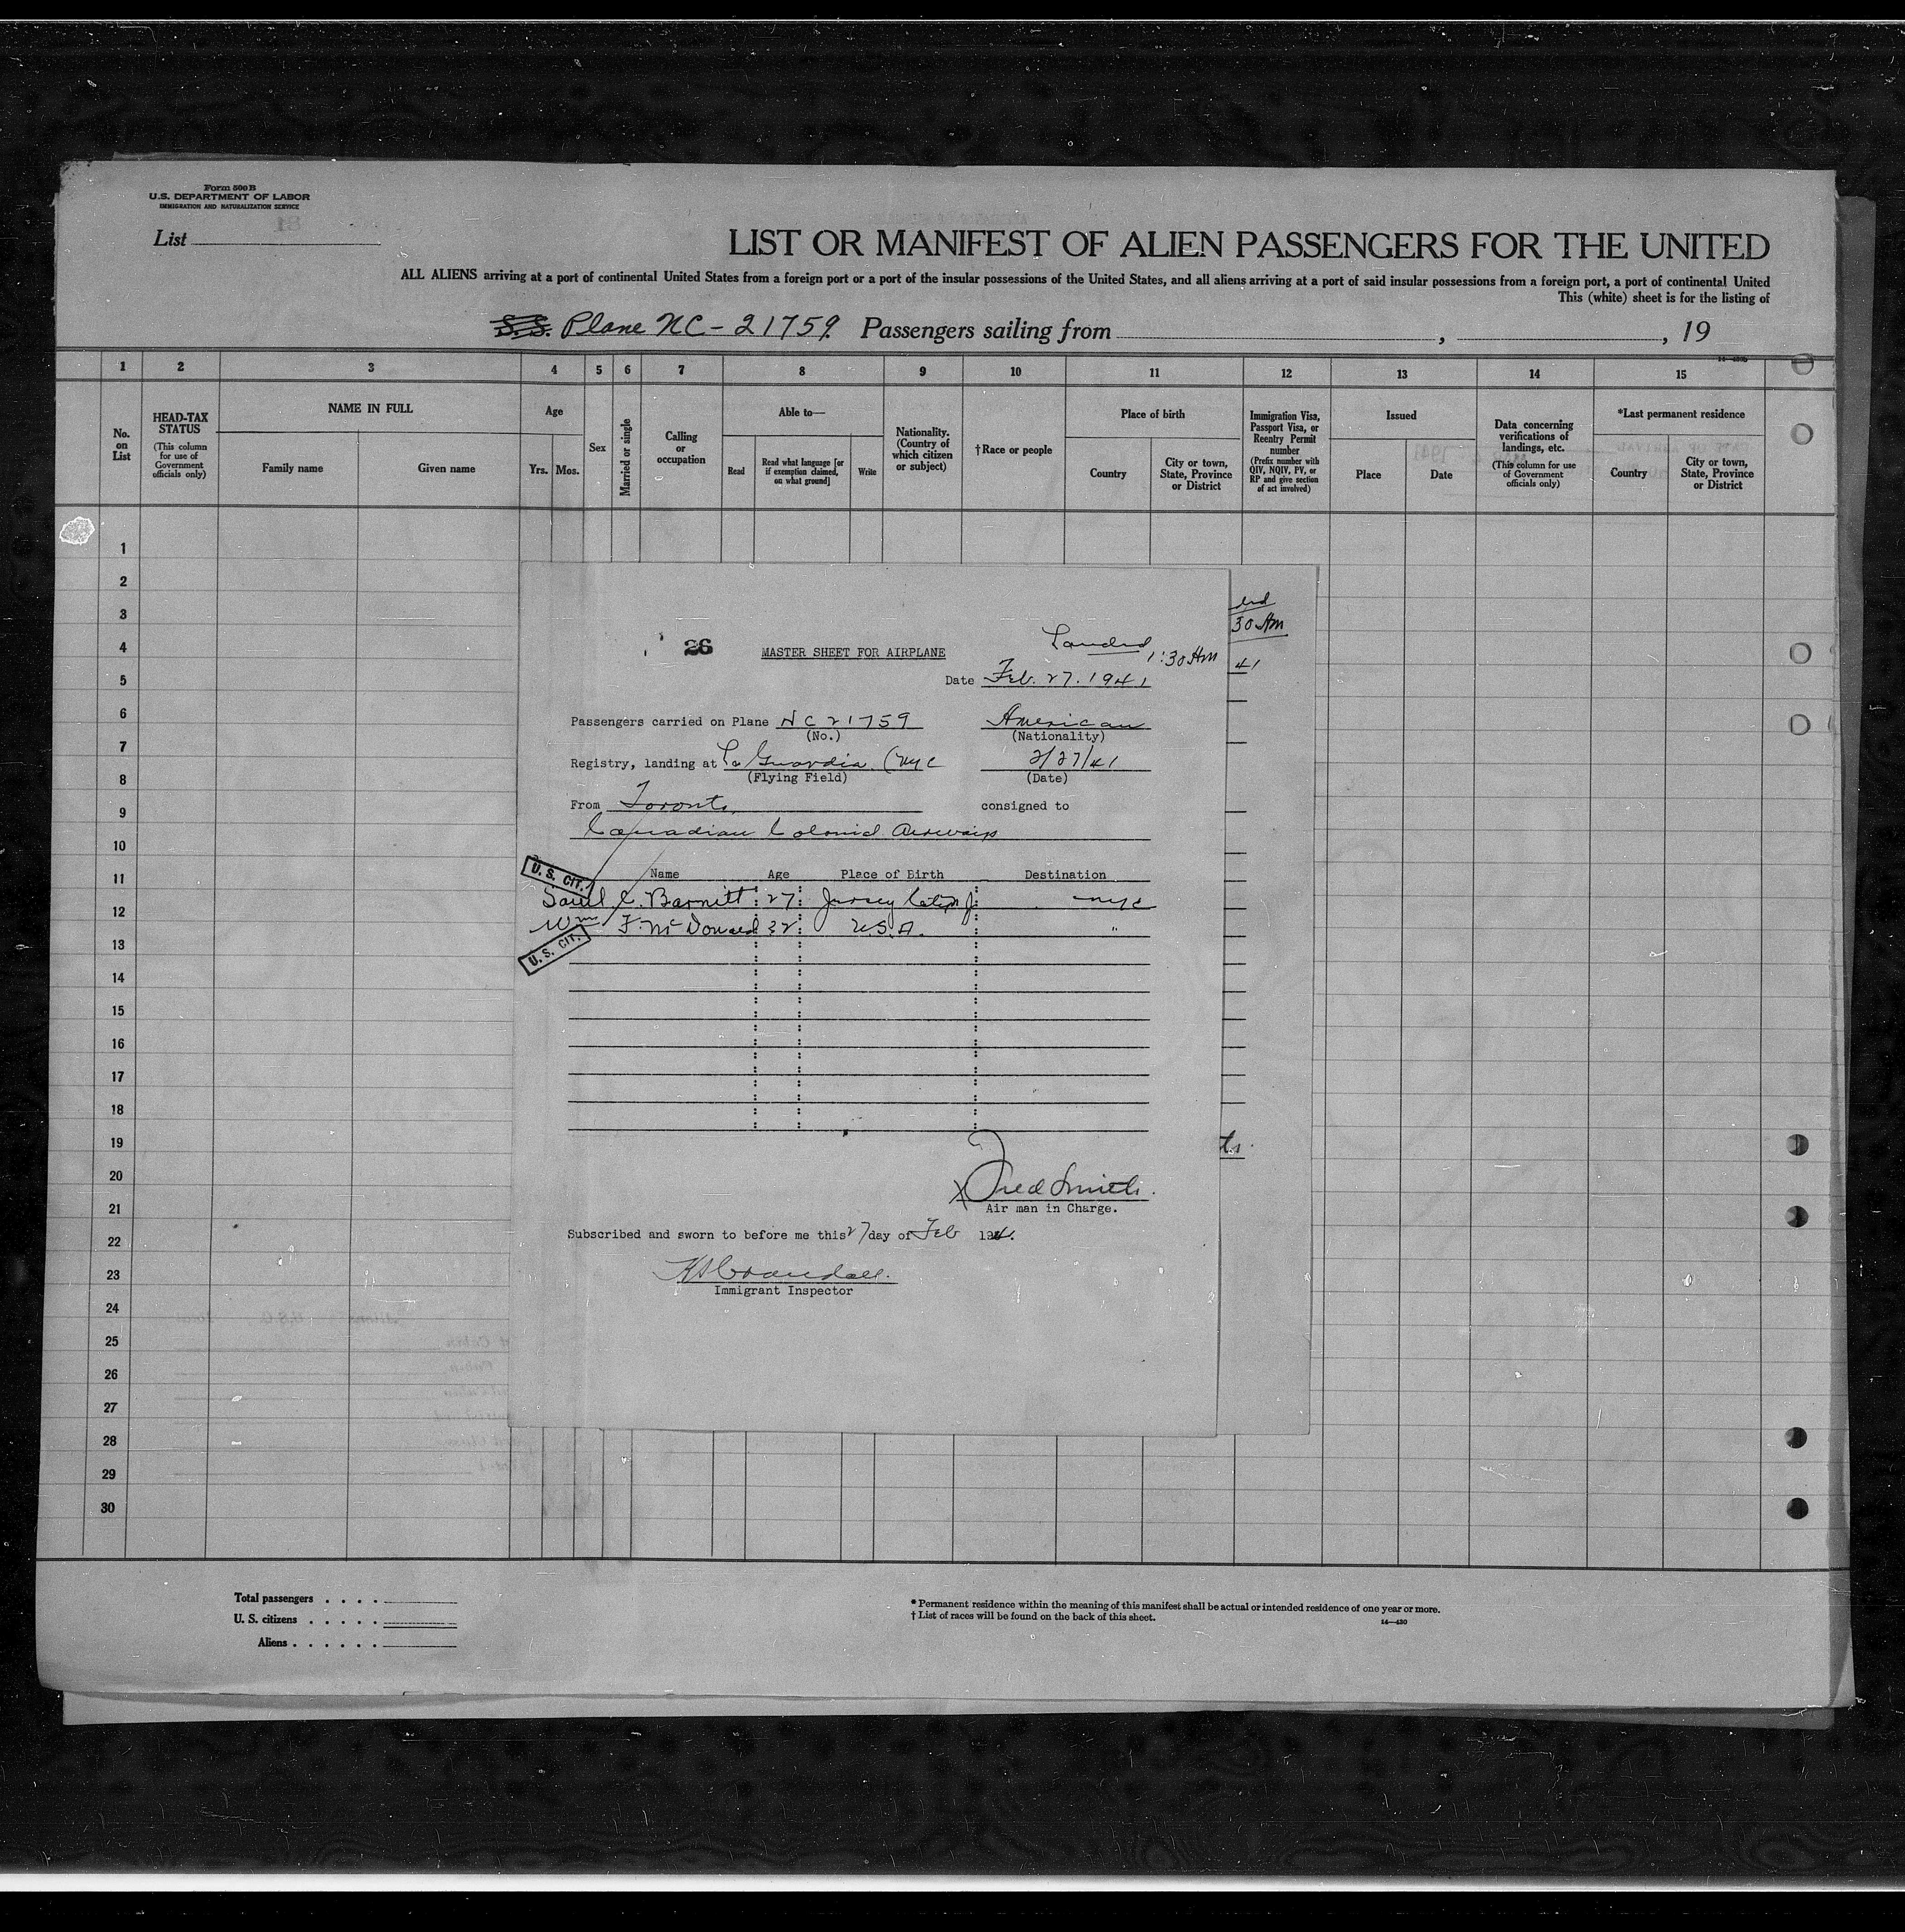 Form 500 B
U.S. DEPARTMENT OF LABOR
IMMIGRATION AND NATURALIZATION SERVICE
List
LIST OR MANIFEST OF ALIEN PASSENGERS FOR THE UNITED
ALL ALIENS arriving at a port of continental United States from a foreign port or a port of the insular possessions of the United States, and all aliens arriving at a port of said insular possessions from a foreign port, a port of continental United
This (white) sheet is for the listing of
S.S. Plane NC-21759 Passengers sailing from , , 19
1 2 3 4 5 6 7 8 9 10 11 12 13 14 15
No. on List
HEAD-TAX STATUS
(This column for use of Government officials only)
NAME IN FULL
Family name Given name
Age
Yrs. Mos.
Sex
Married or single
Calling or occupation
Able to—
Read
Read what language [or if exemption claimed, on what ground]
Write
Nationality. (Country of which citizen or subject)
†Race or people
Place of birth
Country
City or town, State, Province or District
Immigration Visa, Passport Visa, or Reentry Permit number
(Prefix number with QIV, NQIV, PV, or RP and give section of act involved)
Issued
Place Date
Data concerning verifications of landings, etc.
(This column for use of Government officials only)
*Last permanent residence
Country
City or town, State, Province or District
1
2
3
4
5
6
7
8
9
10
11
12
13
14
15
16
17
18
19
20
21
22
23
24
25
26
27
28
29
30
26 MASTER SHEET FOR AIRPLANE
Landed
1:30 AM
30 AM
Date Feb. 27. 1941
41
Passengers carried on Plane NC 21759 American
(No.) (Nationality)
Registry, landing at La Guardia (NYC 2/27/41
(Flying Field) (Date)
From Toronto consigned to
Canadian Colonial Airways
Name Age Place of Birth Destination
U. S. CIT.
Saul C. Barnitt 27 Jersey City NJ NYC
Wm F. McDonald 32 U.S.A. "
U. S. CIT.
Fred Smith
Air man in Charge.
Subscribed and sworn to before me this 27 day of Feb 1941.
Immigrant Inspector
Total passengers . . . .
U. S. citizens . . . . .
Aliens . . . . . .
* Permanent residence within the meaning of this manifest shall be actual or intended residence of one year or more.
† List of races will be found on the back of this sheet.
14—430